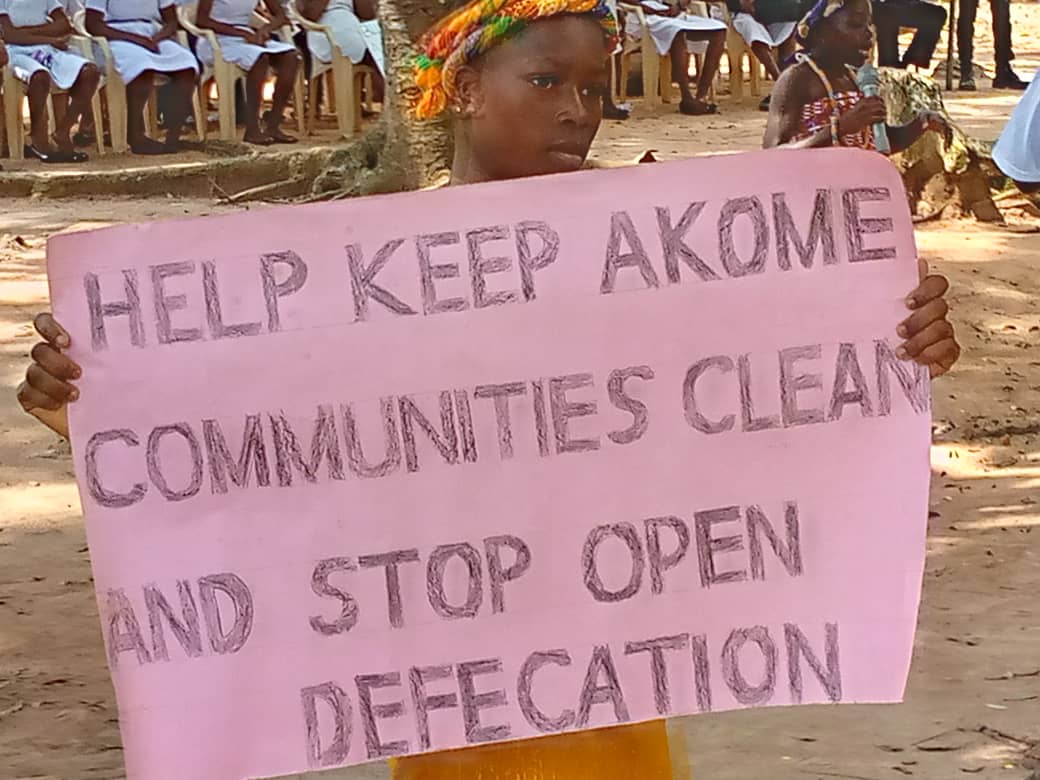 HELP KEEP AKOME
COMMUNITIES CLEAN
AND STOP OPEN
DEFECATION